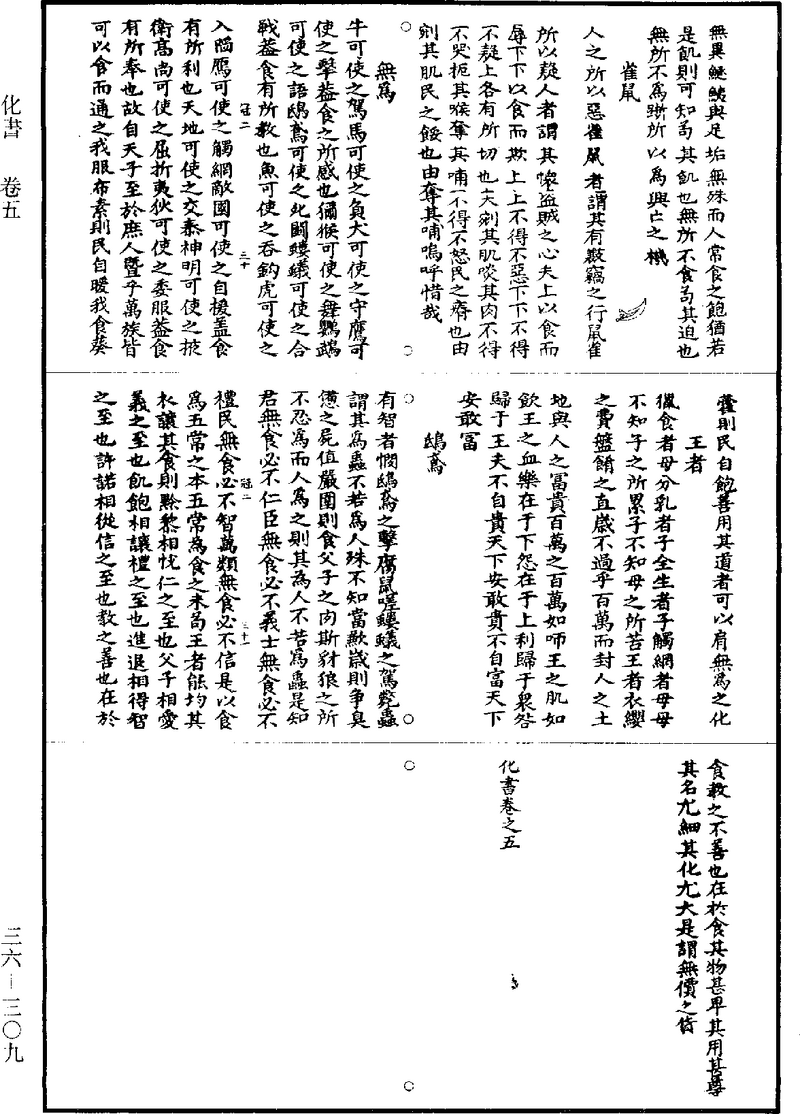 化書 卷五
三六—三〇九
無異鯁鱗與足垢無殊而人常食之飽猶若
是飢則可知苟其飢也無所不食苟其迫也
無所不為斯所以為興亡之機
雀鼠
人之所以惡雀鼠者謂其有攘竊之行雀鼠
所以疑人者謂其懷盜賊之心夫上以食而
辱下下以食而欺上上不得不惡下下不得
不疑上各有所切也夫剜其肌啖其肉不得
不哭扼其喉奪其哺不得不怒民之瘠也由
剜其肌民之餒也由奪其哺嗚呼惜哉
無為
牛可使之駕馬可使之負犬可使之守鷹可
使之擊蓋食之所感也獼猴可使之舞鸚鵡
可使之語鴟鳶可使之死鬪螻蟻可使之合
戰蓋食有所教也魚可使之吞鈎虎可使之
入陷鴈可使之觸網敵國可使之自援蓋食
有所利也天地可使之交泰神明可使之掖
衛高尚可使之屈折夷狄可使之委服蓋食
有所奉也故自天子至於庶人暨乎萬族皆
可以食而通之我服布素則民自暖我食葵
藿則民自飽善用其道者可以肩無為之化
王者
獵食者母分乳者子全生者子觸網者母母
不知子之所累子不知母之所苦王者衣纓
之費盤餚之直歲不過乎百萬而封人之土
地與人之富貴百萬之百萬如咂王之肌如
飲王之血樂在于下怨在于上利歸于衆咎
歸于王夫不自貴天下安敢貴不自富天下
安敢富
鴟鳶
有智者憫鴟鳶之擊腐鼠嗟螻蟻之駕斃蟲
謂其為蟲不若為人殊不知當歉歲則爭臭
憊之屍值嚴圍則食父子之肉斯豺狼之所
不忍為而人為之則其為人不若為蟲是知
君無食必不仁臣無食必不義士無食必不
禮民無食必不智萬類無食必不信是以食
為五常之本五常為食之末苟王者能均其
衣讓其食則黔黎相悅仁之至也父子相愛
義之至也飢飽相讓禮之至也進退相得智
之至也許諾相從信之至也教之善也在於
食教之不善也在於食其物甚卑其用甚尊
其名尤細其化尤大是謂無價之貨
化書卷之五